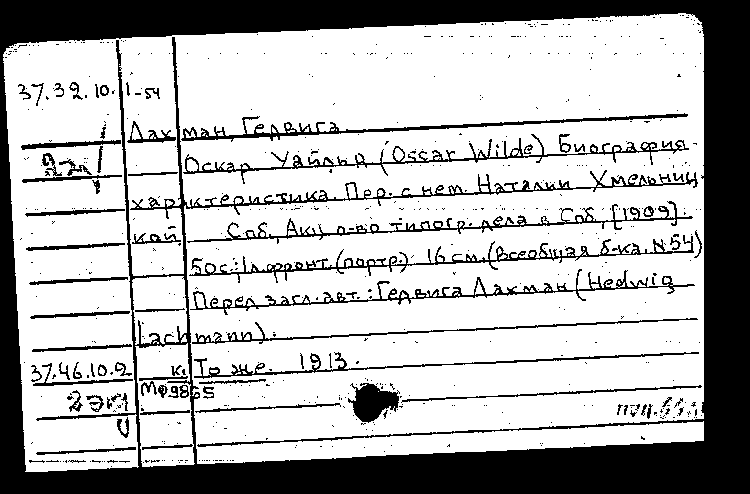 37.39.10. 1-54
Лахман, Гедвига.
2эк Оскар Уайльд (Oscar Wilde) Биография-
характеристика. Пер. с нем. Наталии Хмельниц-
кой. Спб, Акц. о-во типогр. дела в Спб, [1909].
50с.; 1л.фронт. (портр.) 16 см. (Всеобщая б-ка. N54)
Перед загл. авт.: Гедвига Лахман (Hedwig
Lachmann).
37.46.10.2 к. То же. 1913.
2 экз МФ 9865